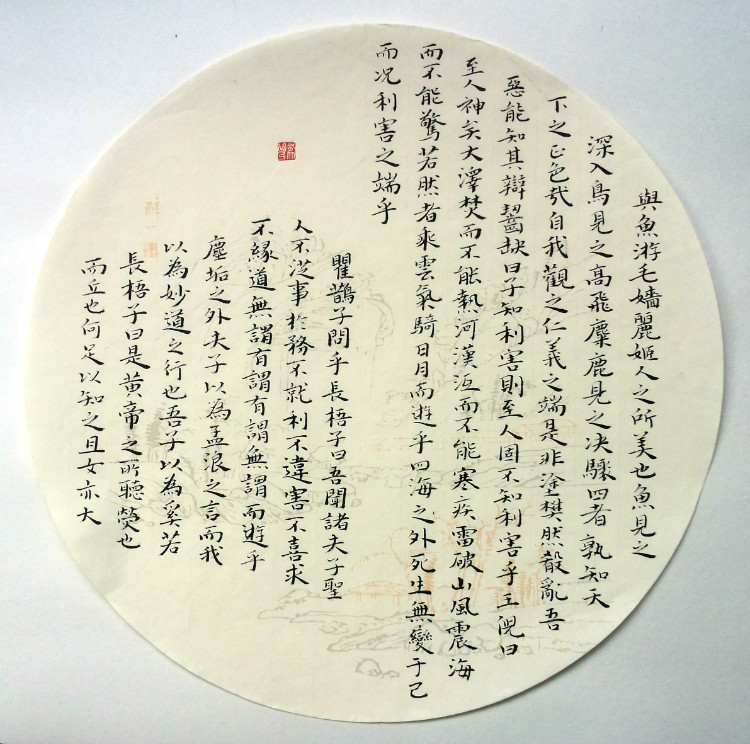 與魚游毛嬙麗姬人之所美也魚見之
深入鳥見之高飛麋鹿見之决驟四者孰知天
下之正色哉自我觀之仁義之端是非塗樊然殽亂吾
惡能知其辯齧缺曰子知利害則至人固不知利害乎王倪曰
至人神矣大澤焚而不能熱河漢冱而不能寒疾雷破山風震海
而不能驚若然者乘雲氣騎日月而遊乎四海之外死生無變于己
而况利害之端乎
瞿鵲子問乎長梧子曰吾聞諸夫子聖
人不從事於務不就利不違害不喜求
不緣道無謂有謂有謂無謂而遊乎
塵垢之外夫子以為孟浪之言而我
以為妙道之行也吾子以為奚若
長梧子曰是黃帝之所聽熒也
而丘也何足以知之且女亦大